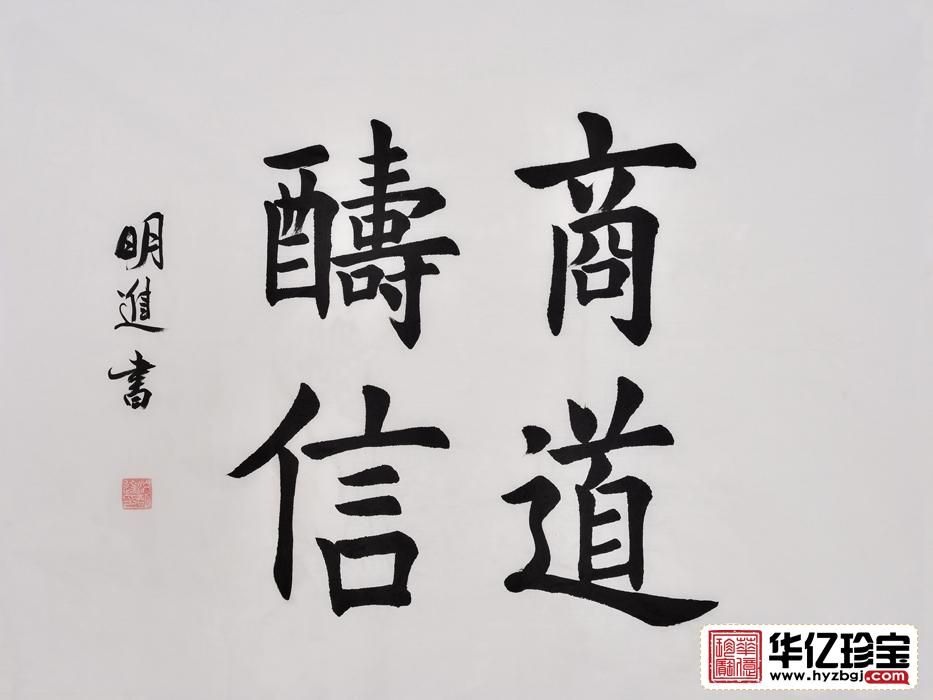 商道
醻信
明進書
华亿珍宝
www.hyzbgj.com